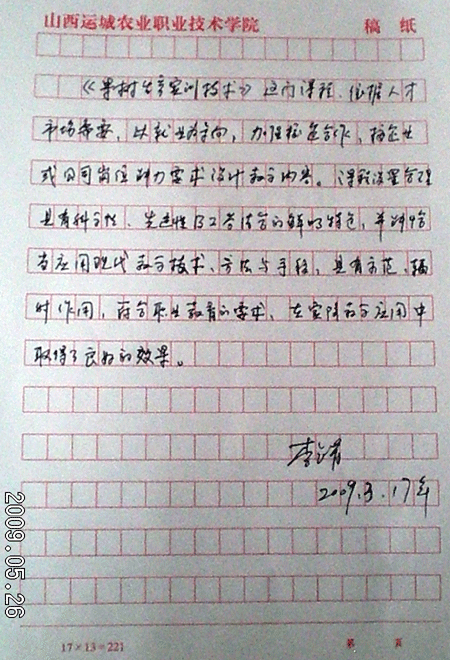 山西运城农业职业技术学院 稿 纸
《果树生产实训技术》这门课程，依据人才
市场需要，以就业为导向，加强校企合作，按企业
或公司岗位能力要求设计教学内容。课程设置合理
具有科学性、先进性和工学结合的鲜明特色，并能恰
当应用现代教学技术、方法与手段，具有示范、辐
射作用，符合职业教育的要求，在实际教学应用中
取得了良好的效果。
2009.3.17年
2009.05.26
17×13=221 第 页